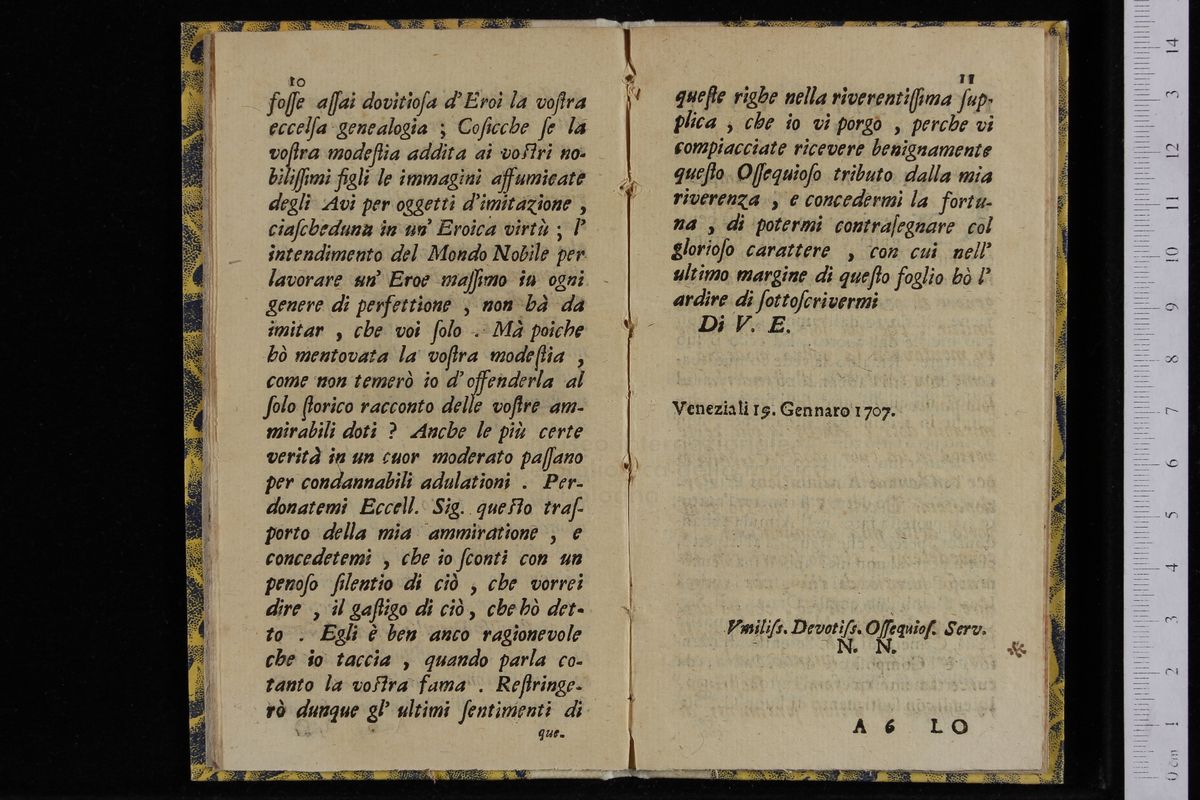 10
fosse assai dovitiosa d'Eroi la vostra
eccelsa genealogia ; Cosicche se la
vostra modestia addita ai vostri no-
bilissimi figli le immagini affumicate
degli Avi per oggetti d'imitazione ,
ciascheduna in un' Eroica virtù ; l'
intendimento del Mondo Nobile per
lavorare un' Eroe massimo in ogni
genere di perfettione , non hà da
imitar , che voi solo . Mà poiche
hò mentovata la vostra modestia ,
come non temerò io d'offenderla al
solo storico racconto delle vostre am-
mirabili doti ? Anche le più certe
verità in un cuor moderato passano
per condannabili adulationi . Per-
donatemi Eccell. Sig. questo tras-
porto della mia ammiratione , e
concedetemi , che io sconti con un
penoso silentio di ciò , che vorrei
dire , il gastigo di ciò, che hò det-
to . Egli è ben anco ragionevole
che io taccia , quando parla co-
tanto la vostra fama . Restringe-
rò dunque gl' ultimi sentimenti di
que-
11
queste righe nella riverentissima sup-
plica , che io vi porgo , perche vi
compiacciate ricevere benignamente
questo Ossequioso tributo dalla mia
riverenza , e concedermi la fortu-
na , di potermi contrasegnare col
glorioso carattere , con cui nell'
ultimo margine di questo foglio hò l'
ardire di sottoscrivermi
Di V. E.
Venezia li 19. Gennaro 1707.
Vmiliss. Devotiss. Ossequios. Serv.
N. N.
A 6 LO
0 cm 1 2 3 4 5 6 7 8 9 10 11 12 13 14